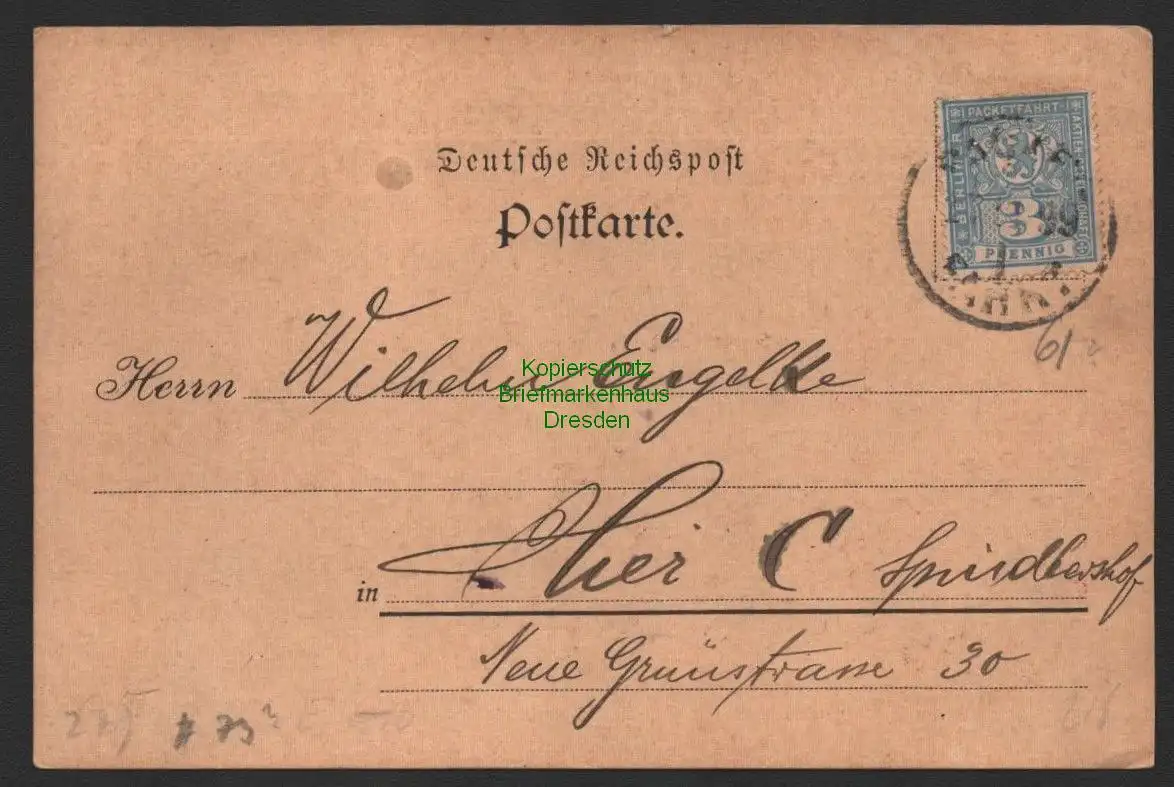 Deutsche Reichspost
Postkarte.
BERLINER PACKETFAHRT AKTIEN GESELLSCHAFT
3
PFENNIG
99
61
Herrn Wilhelm Engelke
Kopierschutz
Briefmarkenhaus
Dresden
in Hier C Spindlershof
Neue Grünstrasse 30